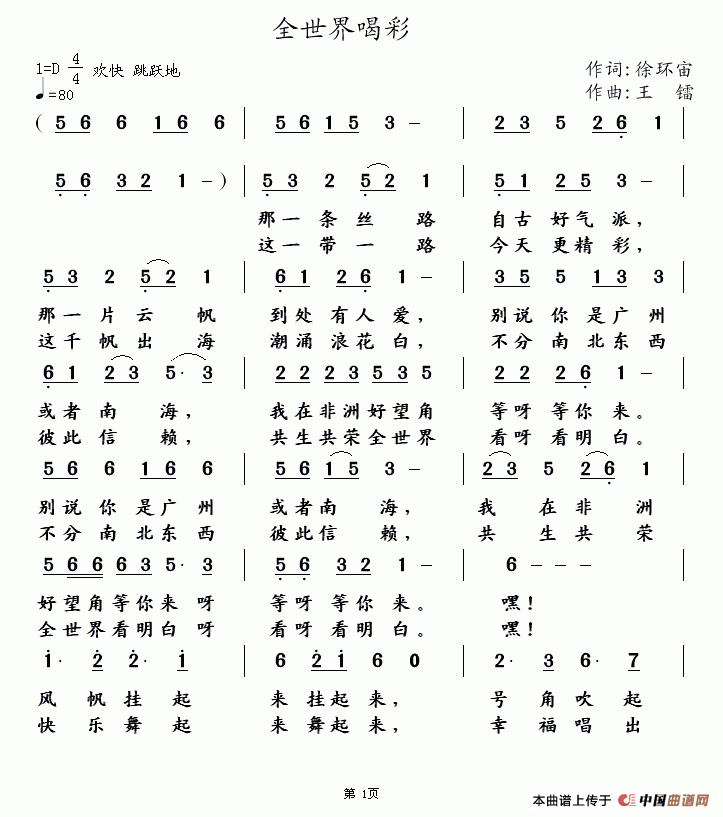 全世界喝彩
1=D 4/4 欢快 跳跃地
♩=80
作词:徐环宙
作曲:王 镭
( 5 6 6 1 6 6 | 5 6 1 5 3 – | 2 3 5 2 6 1 |
5 6 3 2 1 – ) | 5 3 2 5 2 1 | 5 1 2 5 3 – |
那一条丝 路 自古好气派,
这一带一 路 今天更精彩,
5 3 2 5 2 1 | 6 1 2 6 1 – | 3 5 5 1 3 3 |
那一片云 帆 到处有人爱, 别说你是广州
这千帆出 海 潮涌浪花白, 不分南北东西
6 1 2 3 5· 3 | 2 2 2 3 5 3 5 | 2 2 2 6 1 – |
或者南 海, 我在非洲好望角 等呀等你来。
彼此信 赖, 共生共荣全世界 看呀看明白。
5 6 6 1 6 6 | 5 6 1 5 3 – | 2 3 5 2 6 1 |
别说你是广州 或者南 海, 我 在非 洲
不分南北东西 彼此信 赖, 共 生共 荣
5 6 6 6 3 5· 3 | 5 6 3 2 1 – | 6 – – |
好望角等你来呀 等呀等你来。 嘿!
全世界看明白呀 看呀看明白。 嘿!
1· 2 2· 1 | 6 2 1 6 0 | 2· 3 6· 7 |
风帆挂起 来挂起来, 号角吹起
快乐舞起 来舞起来, 幸福唱出
第 1页
本曲谱上传于 中国曲谱网